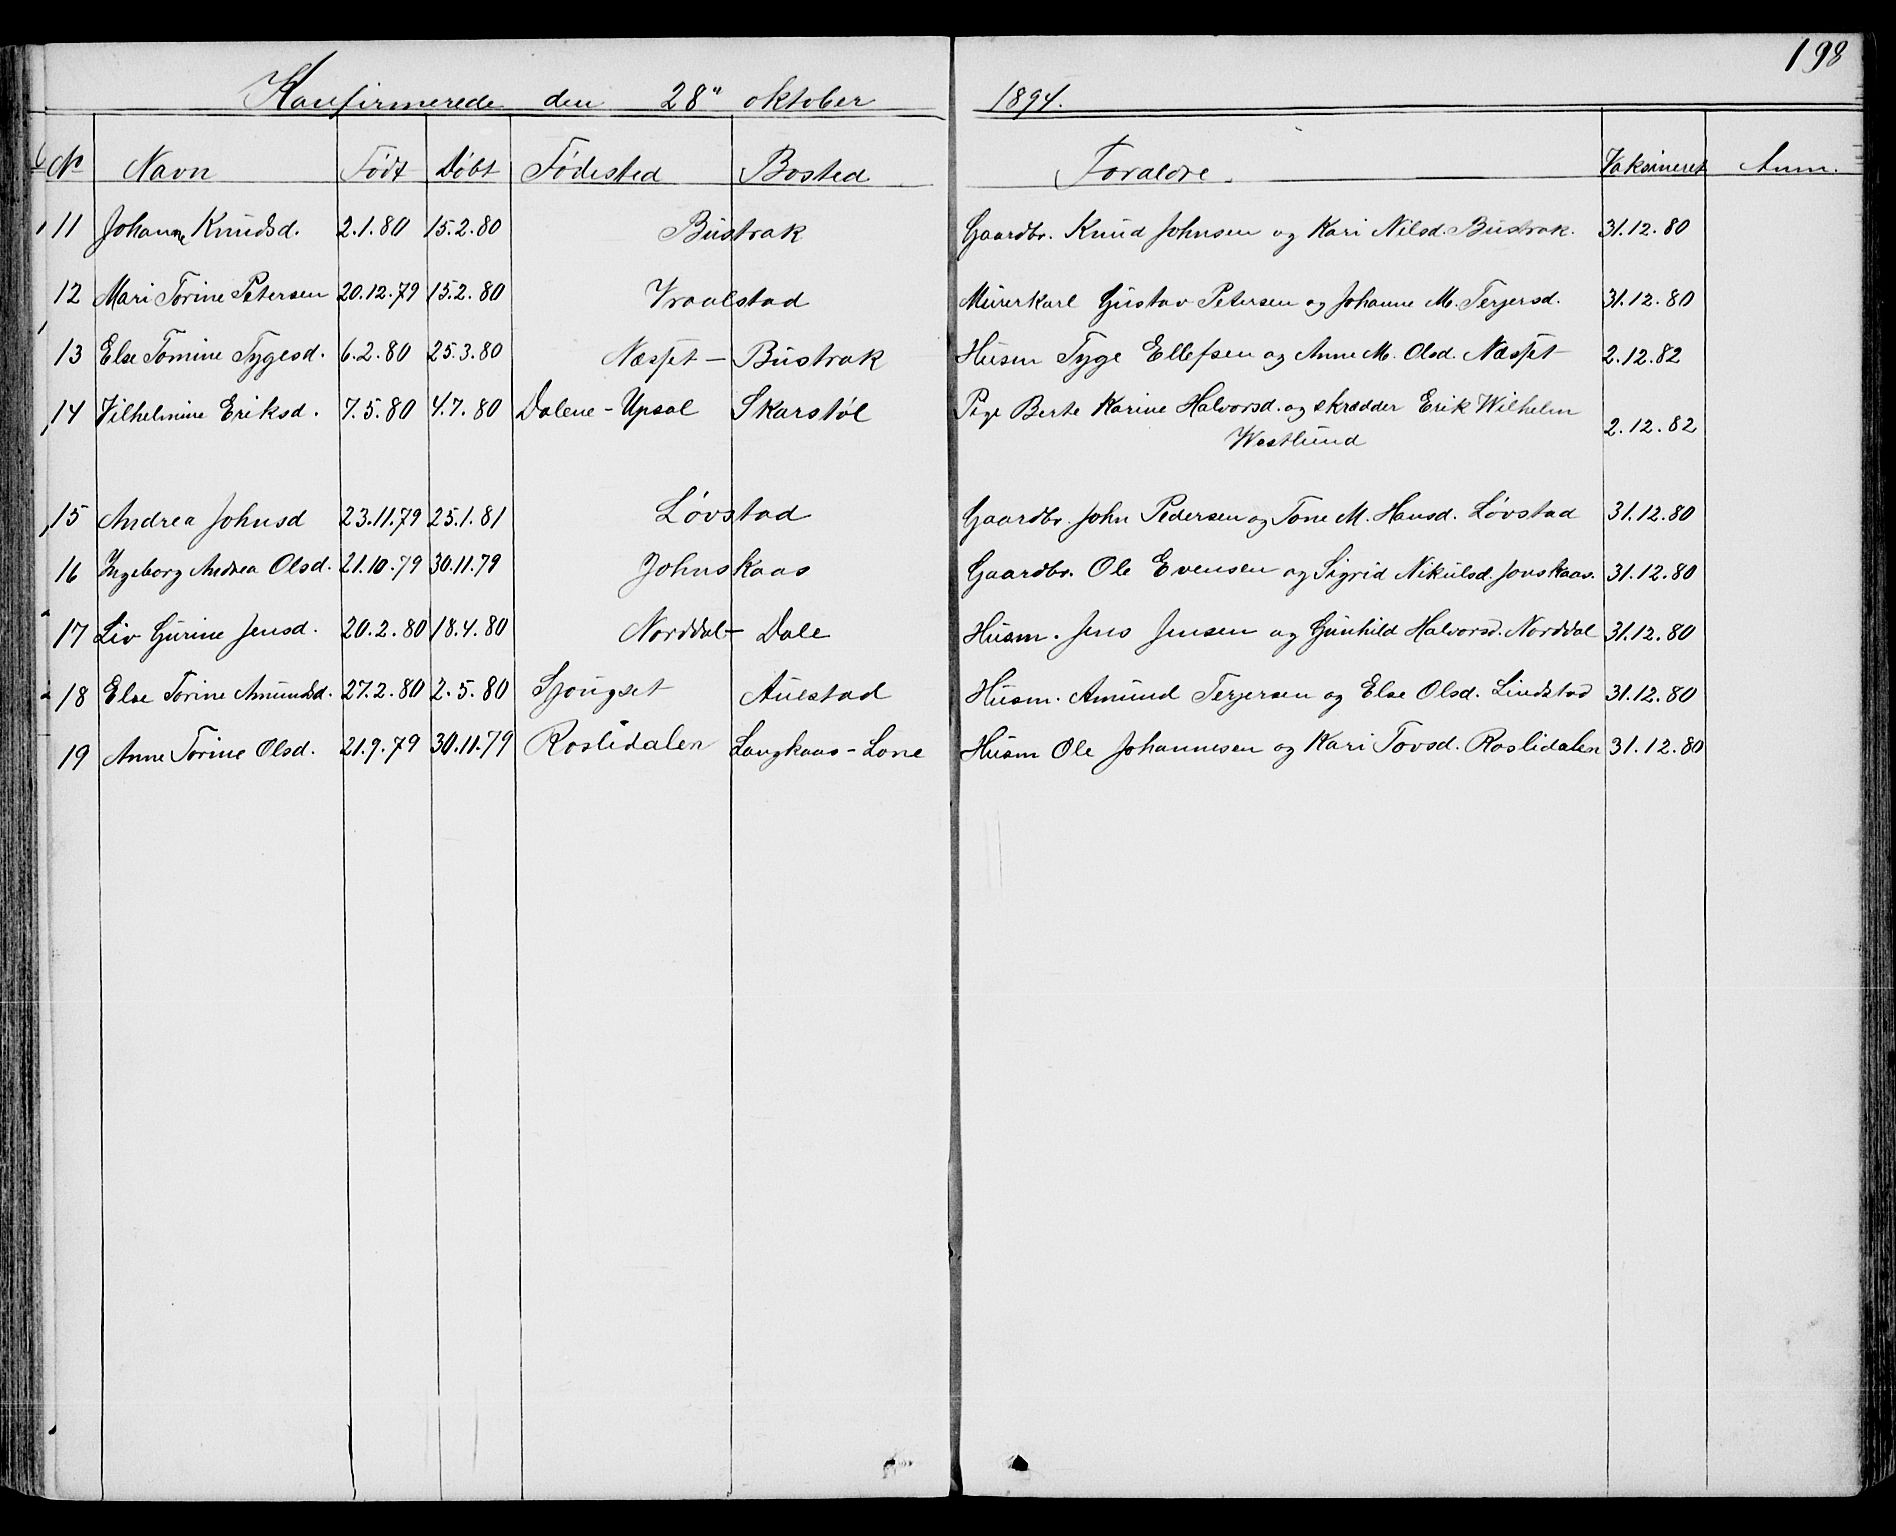 198
Konfirmerede den 28" oktober 1894.
No Navn Født Døbt Fødested Bosted Foraldre. Vaksineret Anm.
11 Johanne Knudsd. 2.1.80 15.2.80 Bustrak Gaardbr. Knud Johnsen og Kari Nilsd. Bustrak. 31.12.80
12 Mari Torine Petersen 20.12.79 15.2.80 Vraalstad Murerkarl Gustav Petersen og Johanne M. Terjersd. 31.12.80
13 Else Tomine Tygesd. 6.2.80 25.3.80 Næsset - Bustrak Husm Tyge Ellefsen og Anne M. Olsd. Næsset 2.12.82
14 Vilhelmine Eriksd. 7.5.80 4.7.80 Dalene - Upsal Skarstøl Pige Berte Karine Halvorsd. og skrædder Erik Wilhelm
Westlund 2.12.82
15 Andrea Johnsd 23.11.79 25.1.81 Løvstad Gaardbr. John Pedersen og Tone M. Hansd. Løvstad 31.12.80
16 Ingeborg Andrea Olsd. 21.10.79 30.11.79 Johnskaas Gaardbr. Ole Evensen og Sigrid Nikulsd. Jonskaas. 31.12.80
17 Liv Gurine Jensd. 20.2.80 18.4.80 Norddal - Dale Husm. Jens Jensen og Gunhild Halvorsd. Norddal 31.12.80
18 Else Torine Amundsd. 27.2.80 2.5.80 Sjougset Aulstad Husm. Amund Terjersen og Else Olsd. Lindstad 31.12.80
19 Anne Torine Olsd. 21.9.79 30.11.79 Roslidalen Langkaas - Lone Husm Ole Johannesen og Kari Tovsd. Roslidalen 31.12.80